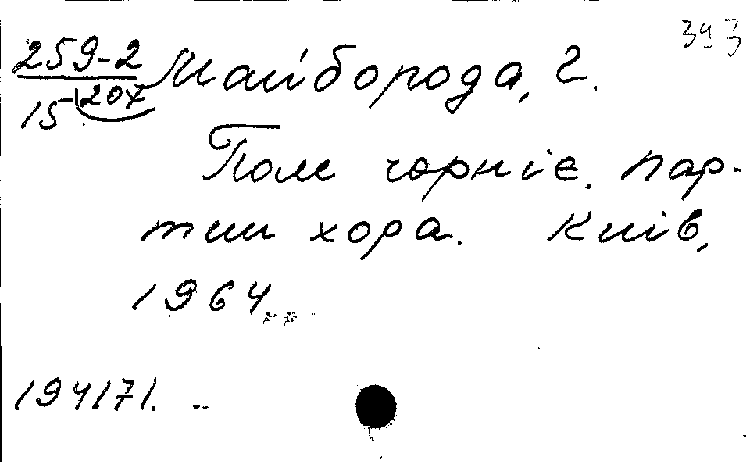 393
259-2 Майборода, Г.
15-207
Поле чорніє. Пар-
тии хора. Київ,
1964
194171.